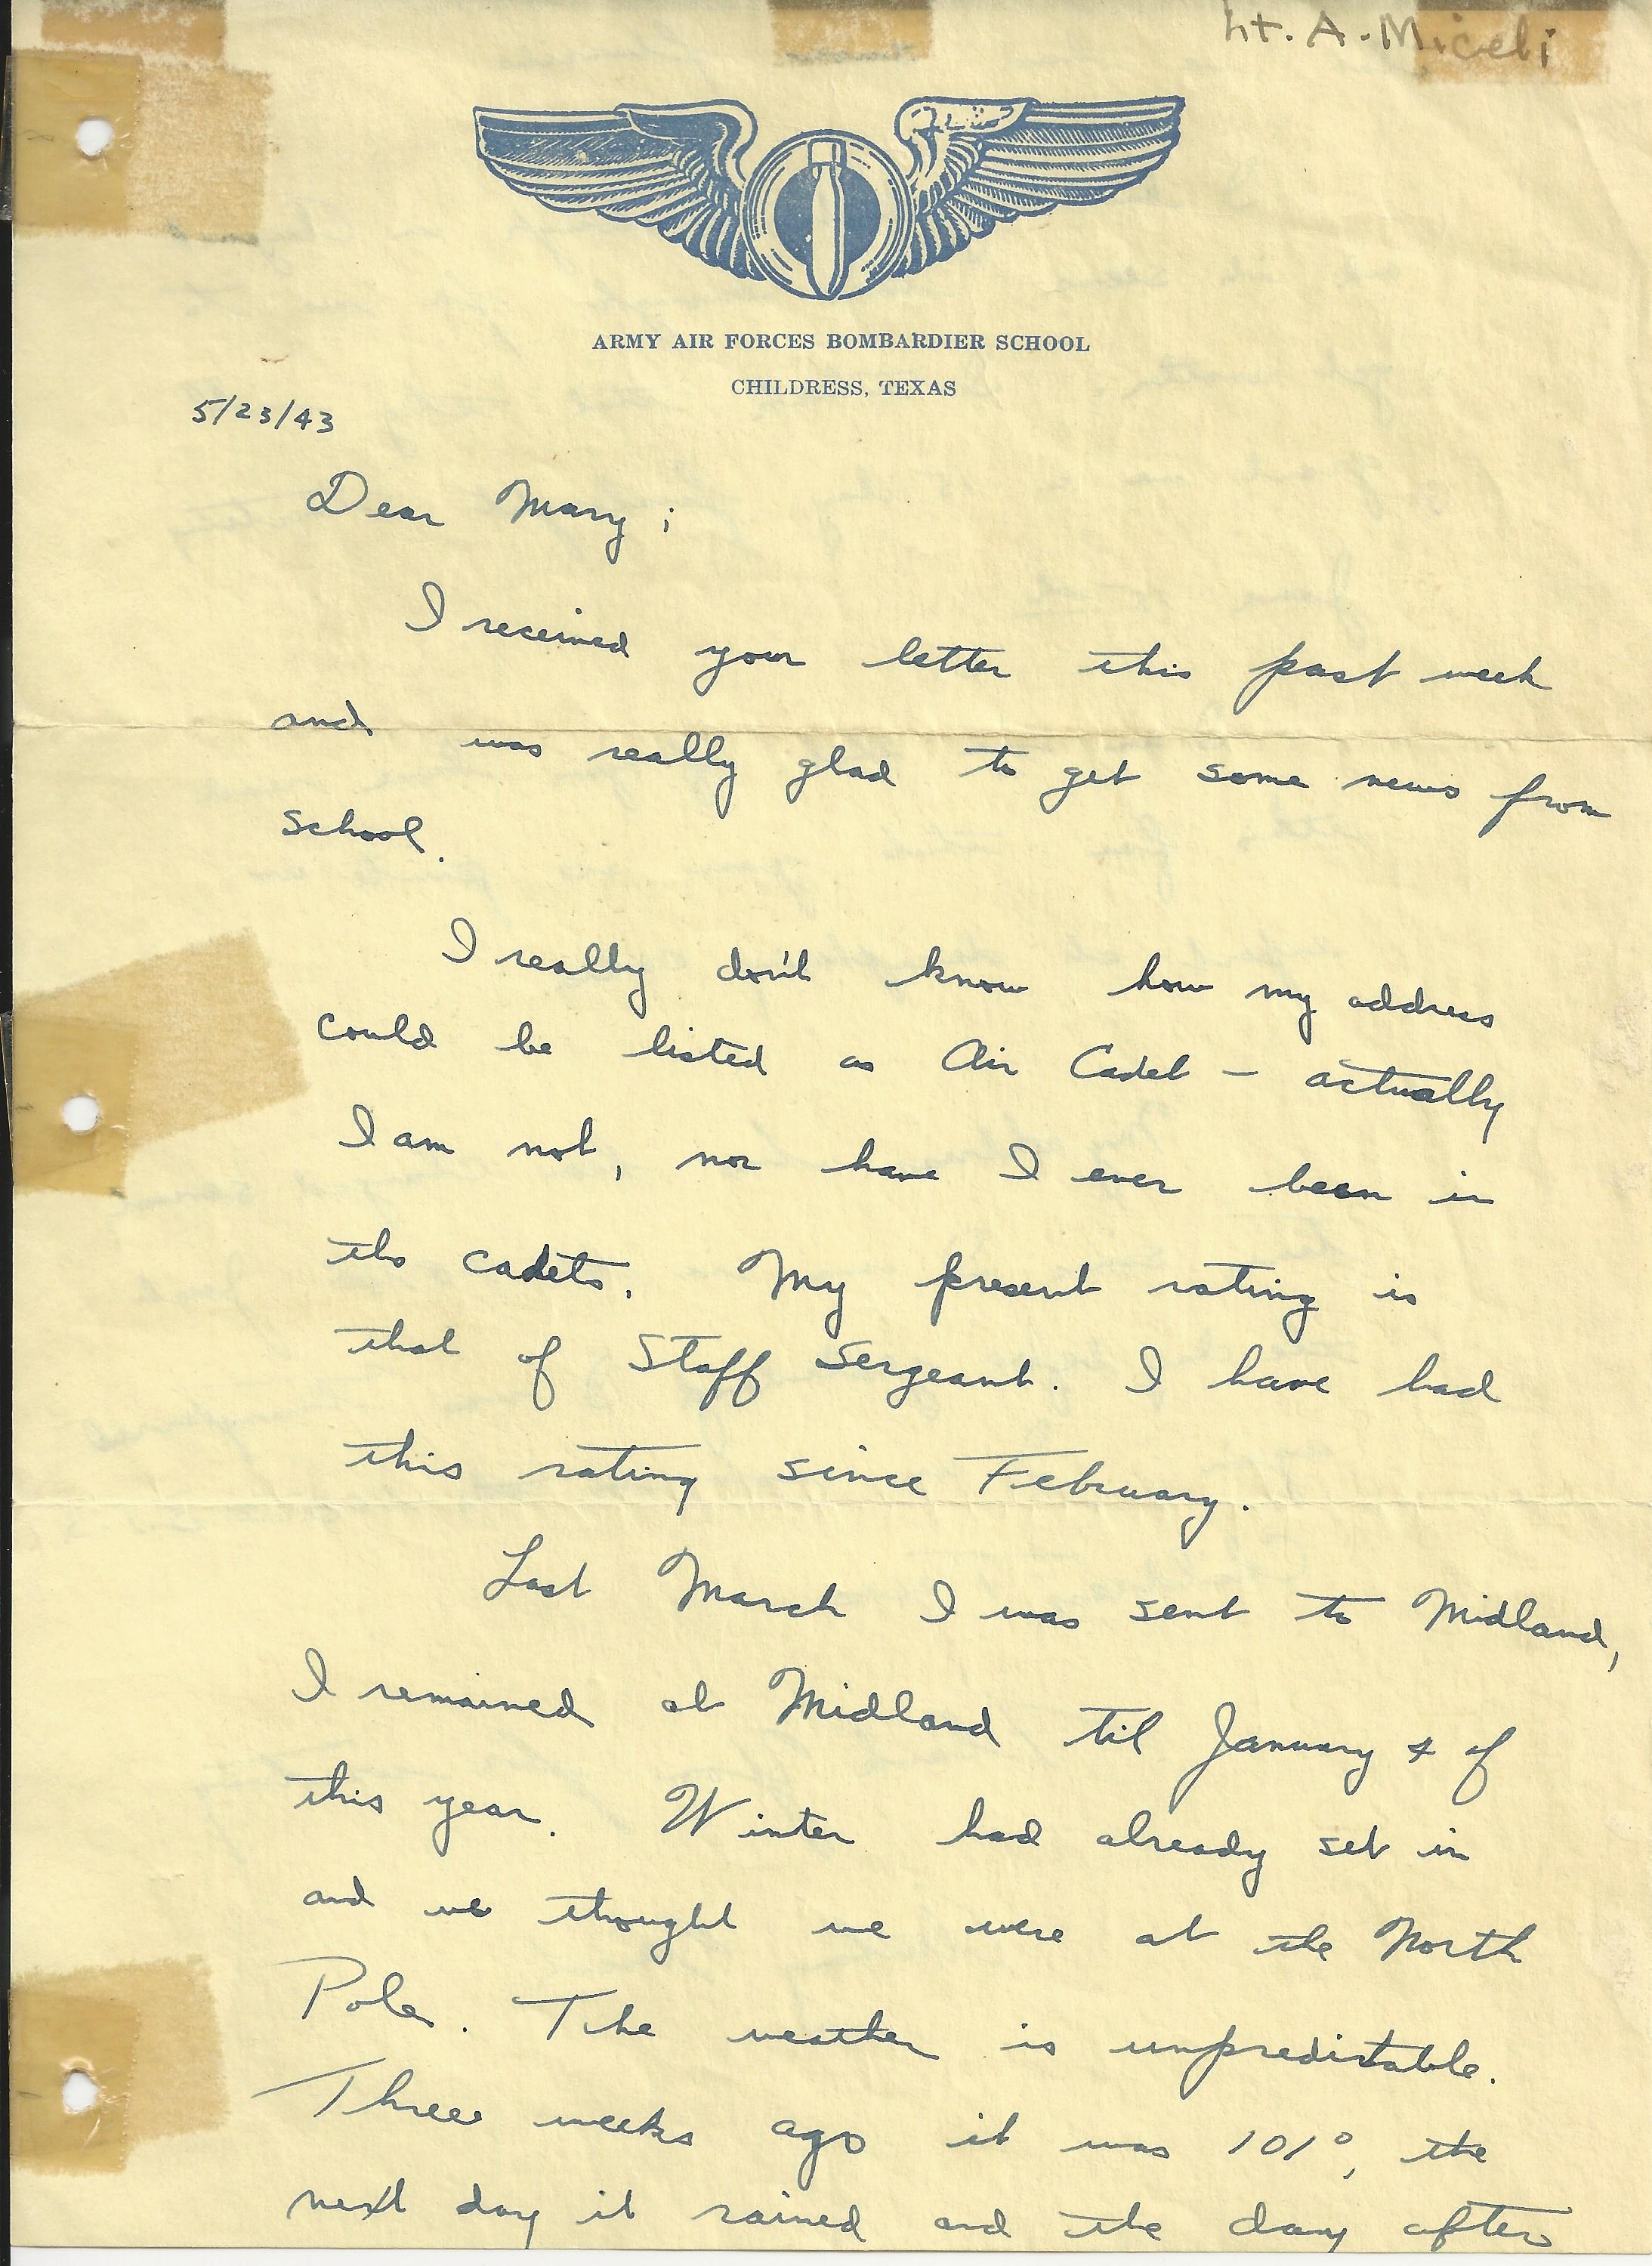 Lt. A. Miceli
ARMY AIR FORCES BOMBARDIER SCHOOL
CHILDRESS, TEXAS
5/23/43
Dear Mary ;
I received your letter this past week
and was really glad to get some news from
school.
I really don't know how my address
could be listed as Air Cadet – actually
I am not, nor have I ever been in
the cadets. My present rating is
that of Staff Sergeant. I have had
this rating since February.
Last March I was sent to Midland,
I remained at Midland til January 4 of
this year. Winter had already set in
and we thought we were at the North
Pole. The weather is unpredistable.
Three weeks ago it was 101°, the
next day it rained and the day after